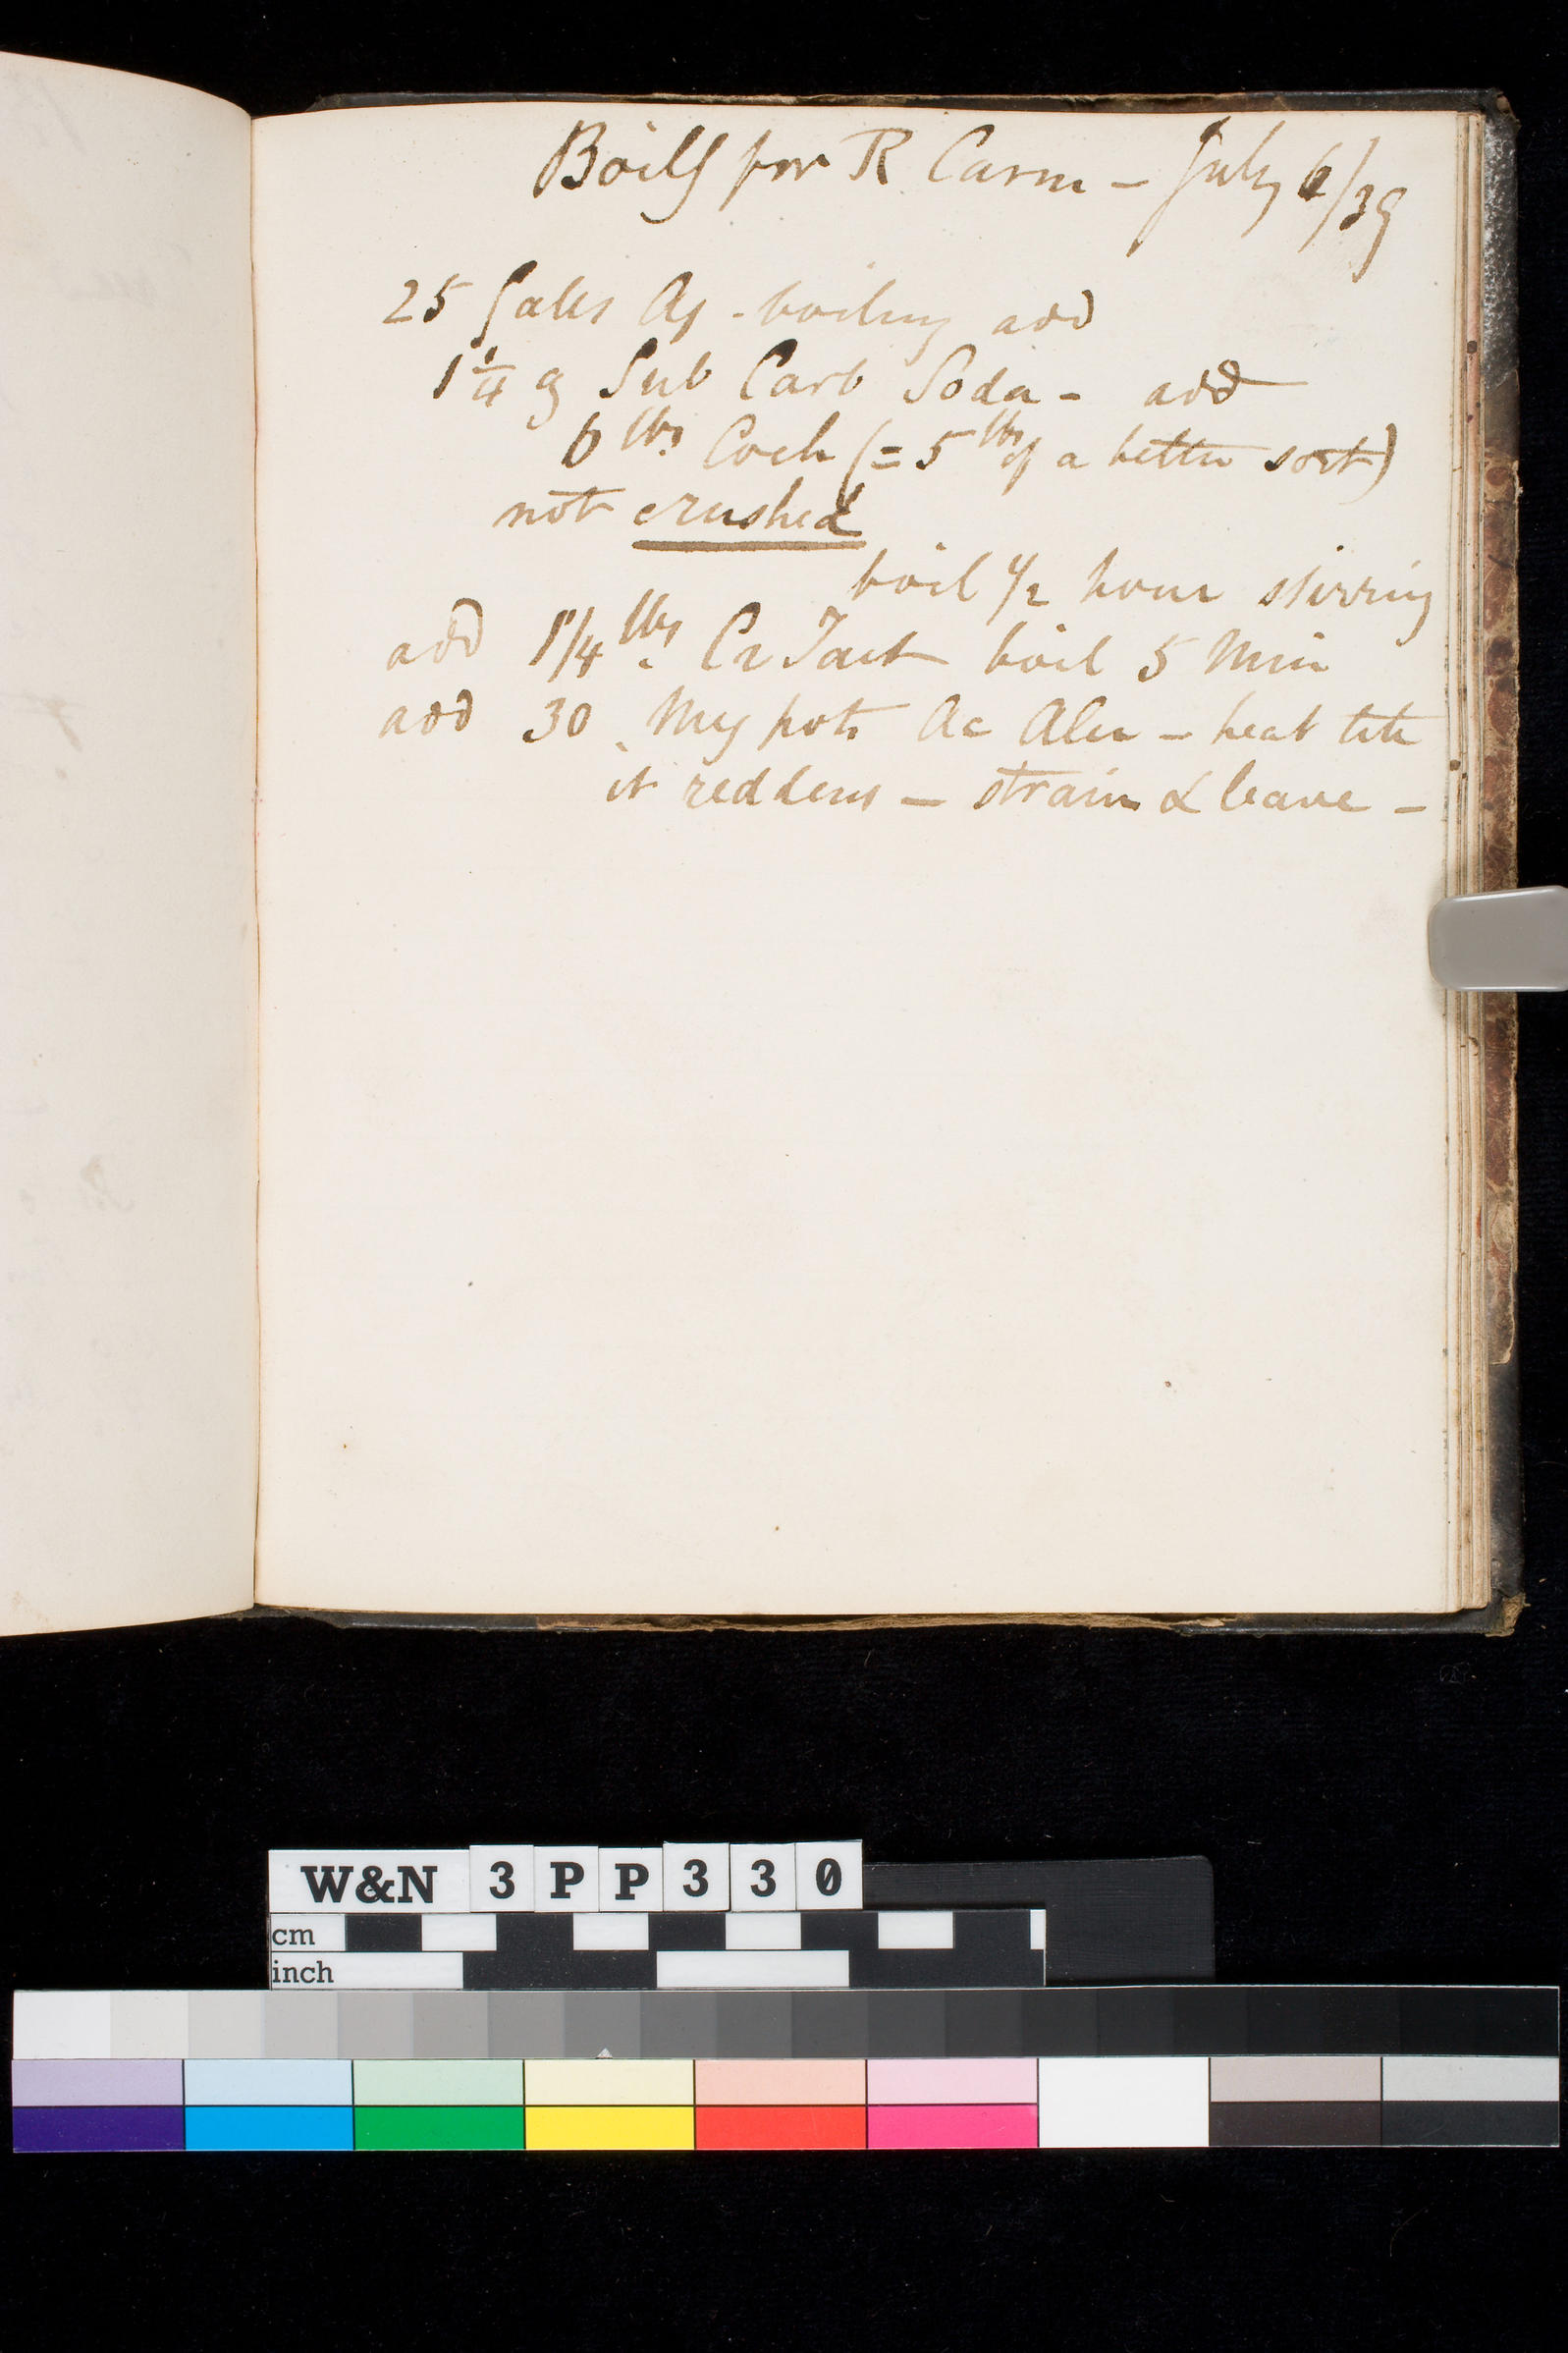 Boilg for R Carm - July 6/39
25 Galls Aq - boiling add
1 1/4 Sub Carb Soda - add
6 lbs Coch (= 5 lbs of a better sort)
not crushed
boil 1/2 hour stirring
add 1 1/4 lbs. Cr Tart boil 5 Min
add 30 pots Ac - heat till
it reddens - strain & leave -
W&N 3PP330
cm
inch